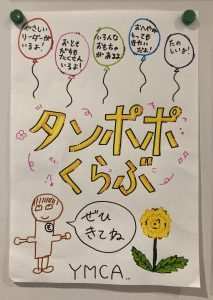 やさしい
リーダーが
いるよ!
おとも
だちも
たくさん
いるよ!
いろんな
おもちゃ
があるよ!
おへやが
とっても
きれいだよ!
たの
しいよ!
タンポポ
くらぶ
ぜひ
きてね
YMCA